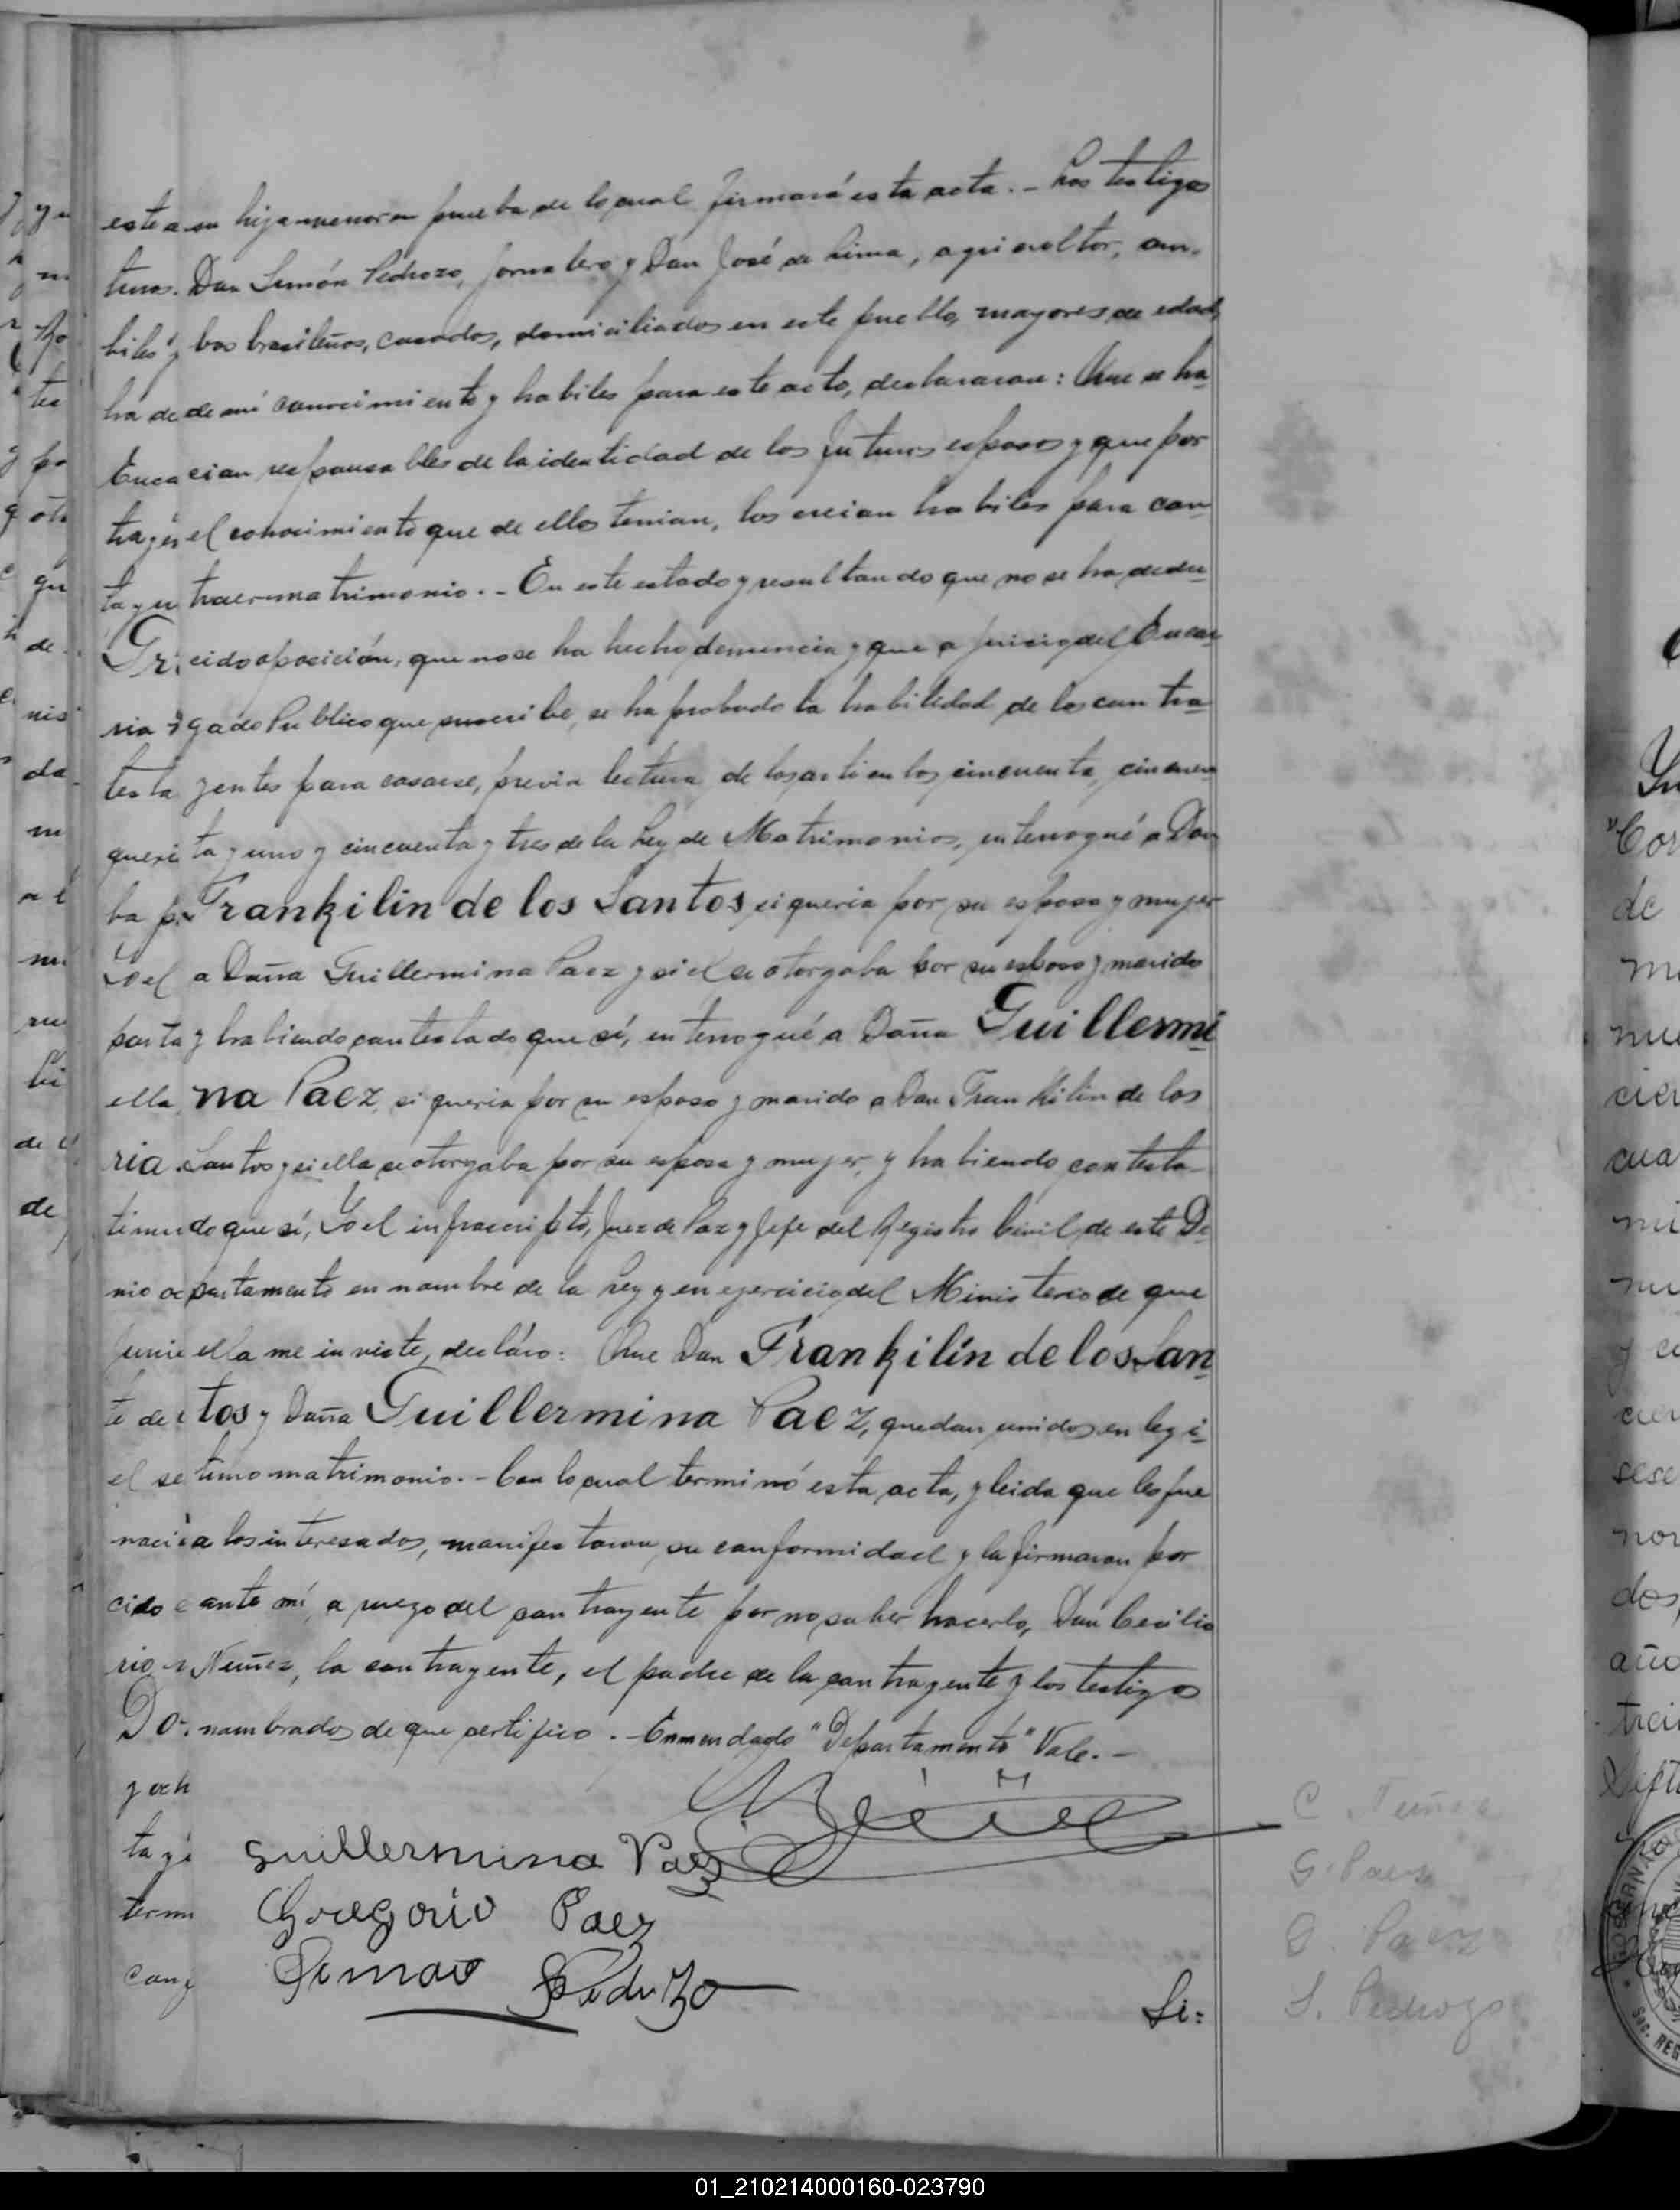 este a su hija menor en prueba de lo cual firmará esta acta. - Los testigos
Don Simón Pedrozo, jornalero y Don José de Lima, agricultor, am-
bos brasileños, casados, domiciliados en este pueblo, mayores de edad,
de mi conocimiento y habiles para este acto, declararon: Que se ha
cian responsables de la identidad de los futuros esposos y que por
el conocimiento que de ellos tenian, los creian habiles para con
traer matrimonio. - En este estado y resultando que no se ha dedu
cido oposición, que no se ha hecho denuncia y que a juicio del Encar
gado Publico que suscribe, se ha probado la habilidad de los contra
yentes para casarse, previa lectura de los articulos cincuenta, cincuen
ta y uno y cincuenta y tres de la Ley de Matrimonios, interrogué a Don
Frankilin de los Santos si queria por su esposa y mujer
a Doña Guillermina Paez y si el se otorgaba por su esposo y marido
y habiendo contestado que sí, interrogué a Doña Guillermi
na Paez, si queria por su esposo y marido a Don Frankilin de los
Santos y si ella se otorgaba por su esposa y mujer, y habiendo contesta-
do que sí, Yo el infrascripto, Juez de Paz y Jefe del Registro Civil de este De
partamento en nombre de la Ley y en ejercicio del Ministerio de que
ella me inviste, decláro: Que Don Frankilín de los San
tos y Doña Guillermina Paez, quedan unidos en legi
timo matrimonio. - Con lo cual terminó esta acta, y leida que les fue
a los interesados, manifestaron su conformidad y la firmaron por
ante mí, a ruego del contrayente por no saber hacerlo, Don Cecilio
Nuñez, la contrayente, el padre de la contrayente y los testigos
nombrados de que certifico. - Enmendado "Departamento" Vale. -
Guillermina Paez
Gregorio Paez
Simao Pedrozo
Si:
C Nuñez
G. Paez
G. Paez
S. Pedrozo
01_210214000160-023790